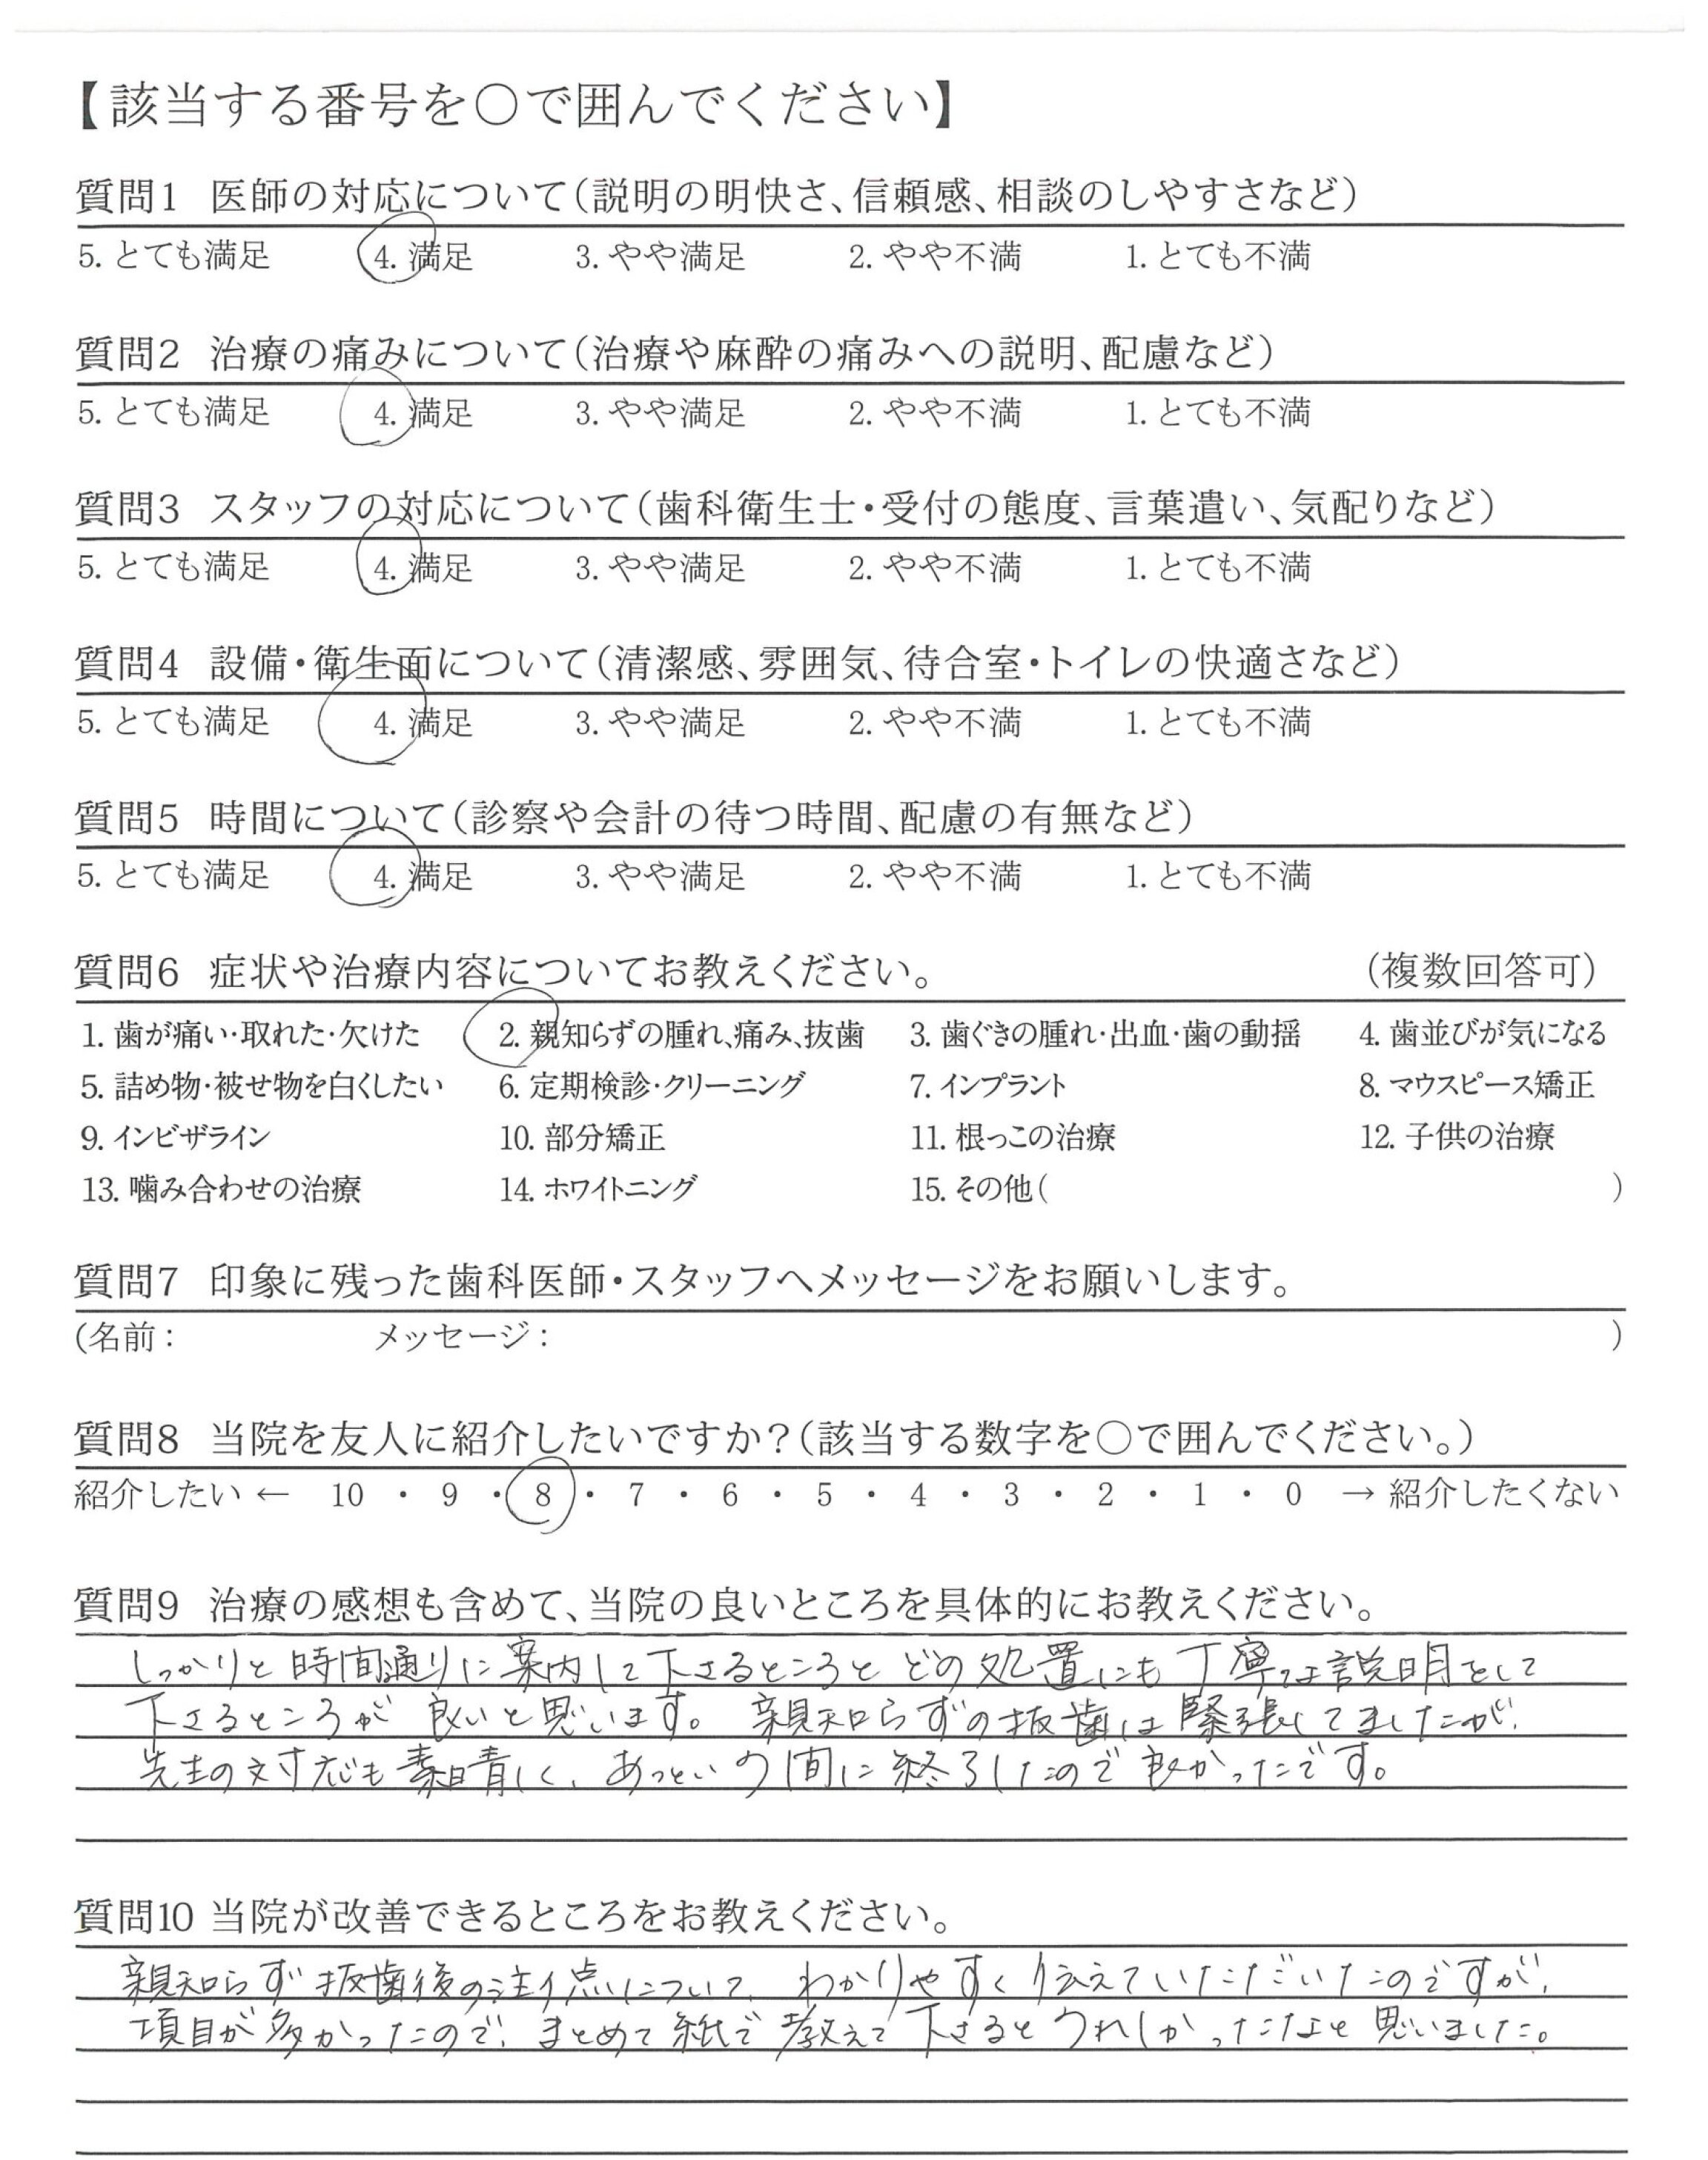 【該当する番号を○で囲んでください】
質問1 医師の対応について（説明の明快さ、信頼感、相談のしやすさなど）
5. とても満足 4. 満足 3. やや満足 2. やや不満 1. とても不満
質問2 治療の痛みについて（治療や麻酔の痛みへの説明、配慮など）
5. とても満足 4. 満足 3. やや満足 2. やや不満 1. とても不満
質問3 スタッフの対応について（歯科衛生士・受付の態度、言葉遣い、気配りなど）
5. とても満足 4. 満足 3. やや満足 2. やや不満 1. とても不満
質問4 設備・衛生面について（清潔感、雰囲気、待合室・トイレの快適さなど）
5. とても満足 4. 満足 3. やや満足 2. やや不満 1. とても不満
質問5 時間について（診察や会計の待つ時間、配慮の有無など）
5. とても満足 4. 満足 3. やや満足 2. やや不満 1. とても不満
質問6 症状や治療内容についてお教えください。 （複数回答可）
1. 歯が痛い・取れた・欠けた 2. 親知らずの腫れ、痛み、抜歯 3. 歯ぐきの腫れ・出血・歯の動揺 4. 歯並びが気になる
5. 詰め物・被せ物を白くしたい 6. 定期検診・クリーニング 7. インプラント 8. マウスピース矯正
9. インビザライン 10. 部分矯正 11. 根っこの治療 12. 子供の治療
13. 噛み合わせの治療 14. ホワイトニング 15. その他（ ）
質問7 印象に残った歯科医師・スタッフへメッセージをお願いします。
（名前： メッセージ： ）
質問8 当院を友人に紹介したいですか？（該当する数字を○で囲んでください。）
紹介したい ← 10 ・ 9 ・ 8 ・ 7 ・ 6 ・ 5 ・ 4 ・ 3 ・ 2 ・ 1 ・ 0 → 紹介したくない
質問9 治療の感想も含めて、当院の良いところを具体的にお教えください。
しっかりと時間通りに案内して下さるところと どの処置にも丁寧な説明をして
下さるところが 良いと思います。 親知らずの抜歯は緊張してましたが、
先生の対応も素晴しく、あっという間に終了したので良かったです。
質問10 当院が改善できるところをお教えください。
親知らず抜歯後の注イ点について、わかりやすく伝えていただいたのですが、
項目が多かったので、まとめて紙で教えて下さるとうれしかったなと思いました。